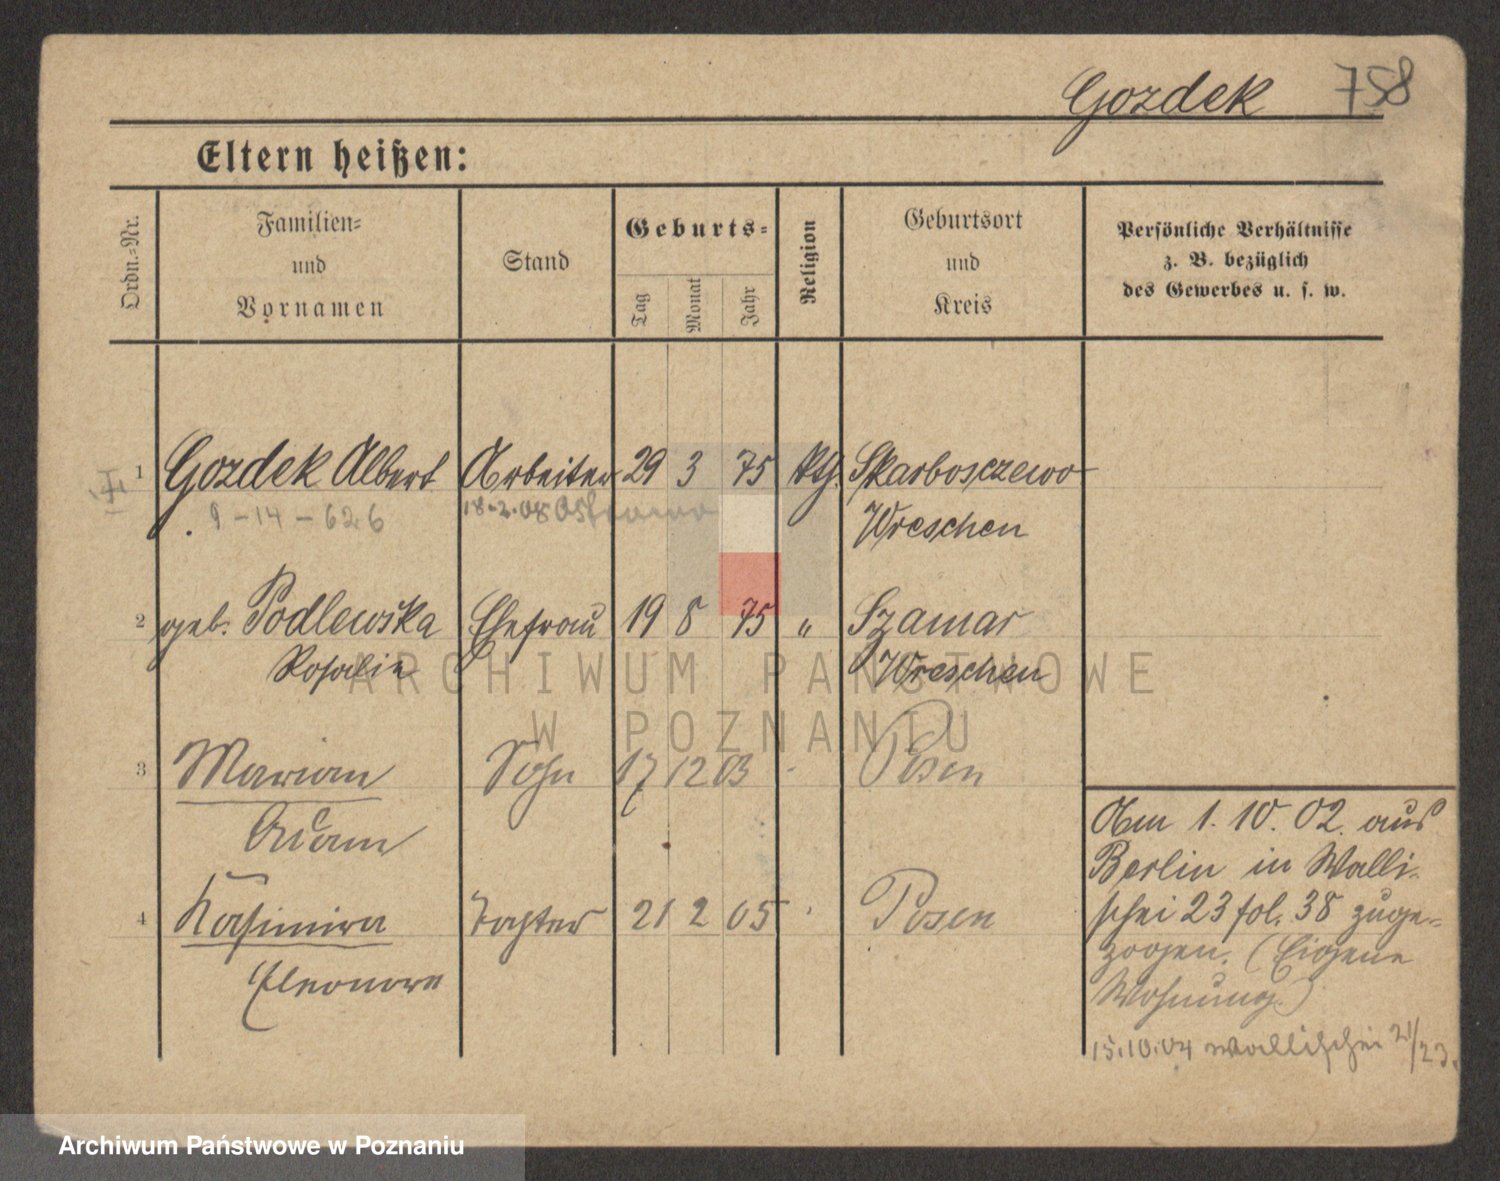 Gozdek 758
Eltern heißen:
Ordn.-Nr.
Familien-
und
Vornamen
Stand
Geburts-
Tag
Monat
Jahr
Religion
Geburtsort
und
Kreis
Persönliche Verhältnisse
z. B. bezüglich
des Gewerbes u. s. w.
1 Gozdek Albert Arbeiter 29 3 75 kth. Skarbosczewo
9-14-626 18.2.08 Wreschen
2 geb. Podlewska Ehefrau 19 8 75 " Szamar
Rosalie Wreschen
3 Marian Sohn 17 12 03 Posen
Adam
4 Kasimira Tochter 21 2 05 Posen
Eleonore
Am 1. 10. 02. aus
Berlin in Walli-
schei 23 fol. 38 zuge-
zogen. (Eigene
Wohnung)
15.10.04 Wallischei 21/23.
ARCHIWUM PAŃSTWOWE
W POZNANIU
Archiwum Państwowe w Poznaniu